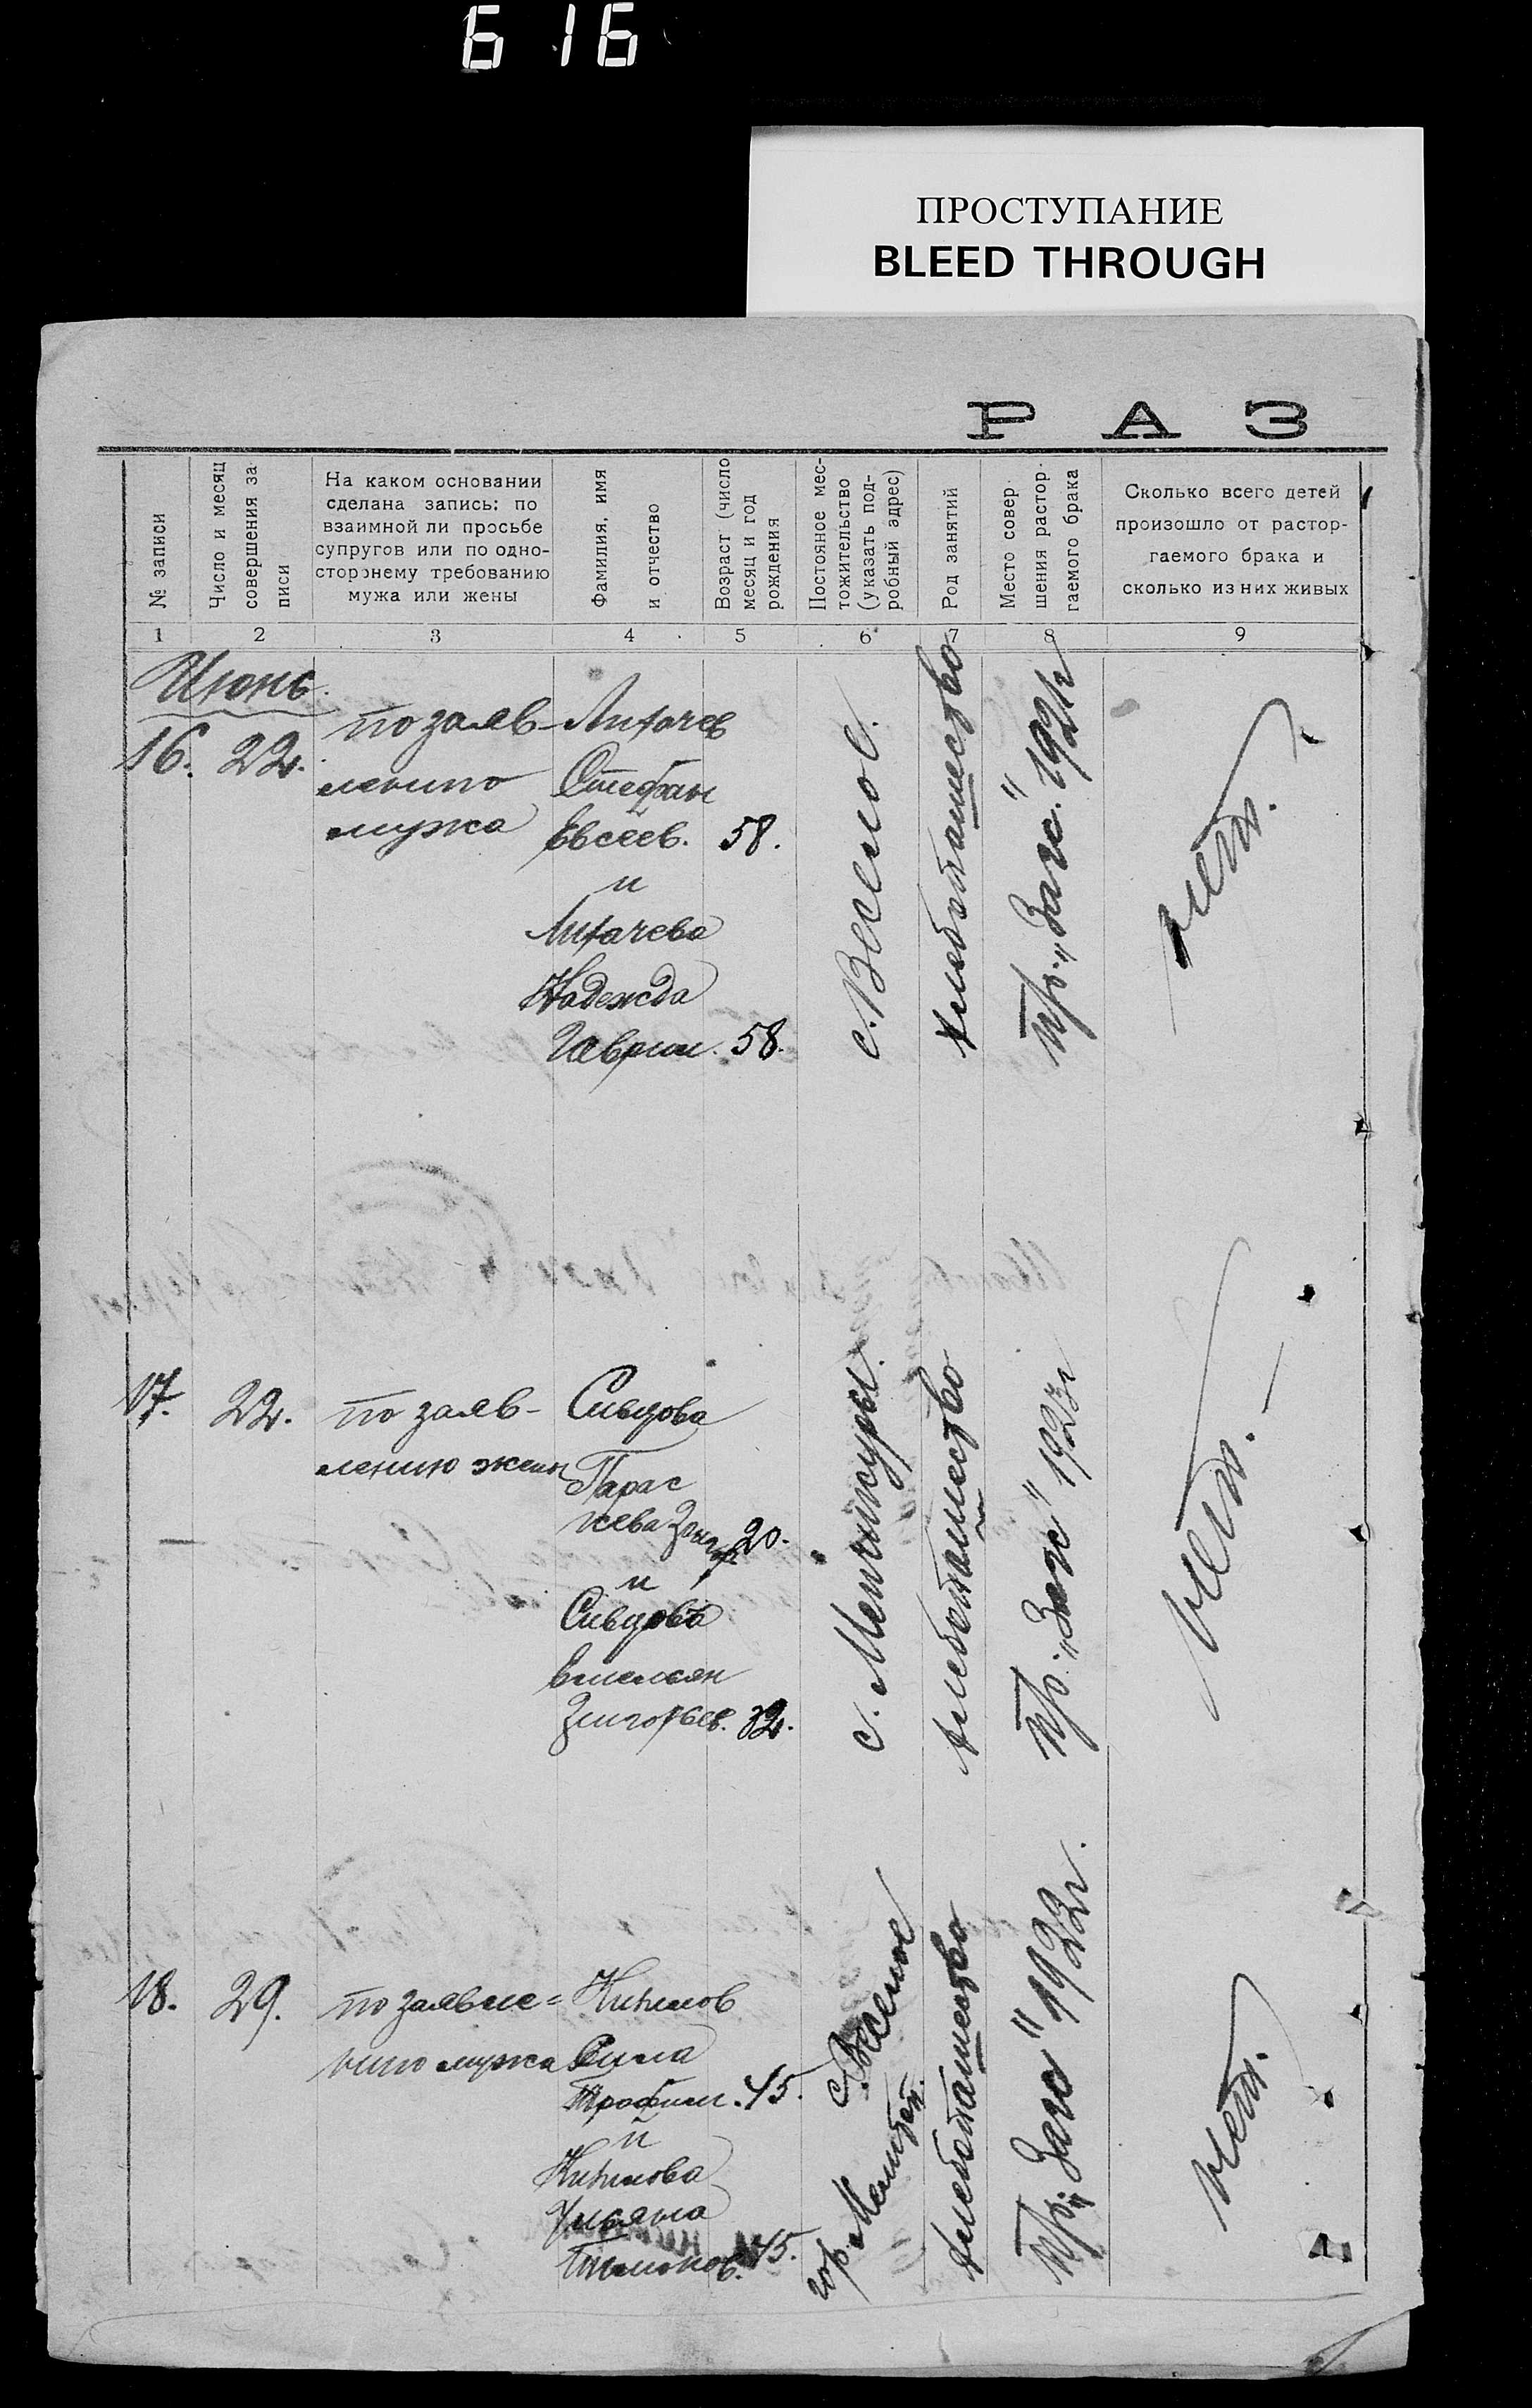 6 16
ПРОСТУПАНИЕ
BLEED THROUGH
РАЗ
№ записи
Число и месяц
совершения за-
писи
На каком основании
сделана запись: по
взаимной ли просьбе
супругов или по одно-
стороннему требованию
мужа или жены
Фамилия, имя
и отчество
Возраст (число
месяц и год
рождения
Постояное мес-
тожительство
(указать под-
робный адрес)
Род занятий
Место совер-
шения растор-
гаемого брака
Сколько всего детей
произошло от растор-
гаемого брака и
сколько из них живых
1 2 3 4 5 6 7 8 9
Июнь
16. 22.
по заяв-
лению
мужа
Лихачев
Стефан
Евсеев. 58.
и
Лихачева
Надежда
Гаврил. 58.
с. Веселое.
хлебопашество
пр. „Загс." 1921г
нет.
17. 22.
по заяв-
лению жены
Сивцова
Парас
кева 20.
и
Сивцовъ
Емельян
Григорьев. 32.
с. Менчикуры.
хлебопашество
пр. „Загс" 1923г
нет.
18. 29.
по заявле=
нию мужа
Сила
Трофим. 45.
и
Ульяна
45.
с. Веселое
гор.
хлебопашество
пр. „Загс" 1922г.
нет.